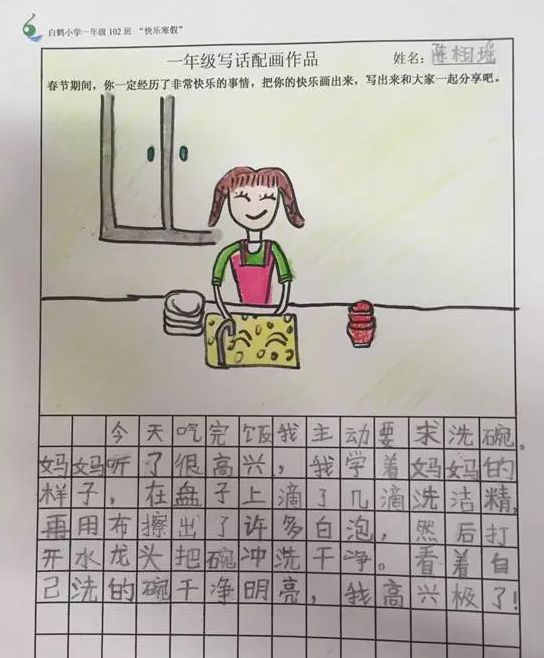 白鹤小学一年级 102 班 “快乐寒假”
一年级写话配画作品
姓名：陈相瑶
春节期间，你一定经历了非常快乐的事情，把你的快乐画出来，写出来和大家一起分享吧。
今天吃完饭我主动要求洗碗。
妈妈听了很高兴，我学着妈妈的
样子，在盘子上滴了几滴洗洁精，
再用布擦出了许多白泡，然后打
开水龙头把碗冲洗干净。看着自
己洗的碗干净明亮，我高兴极了！